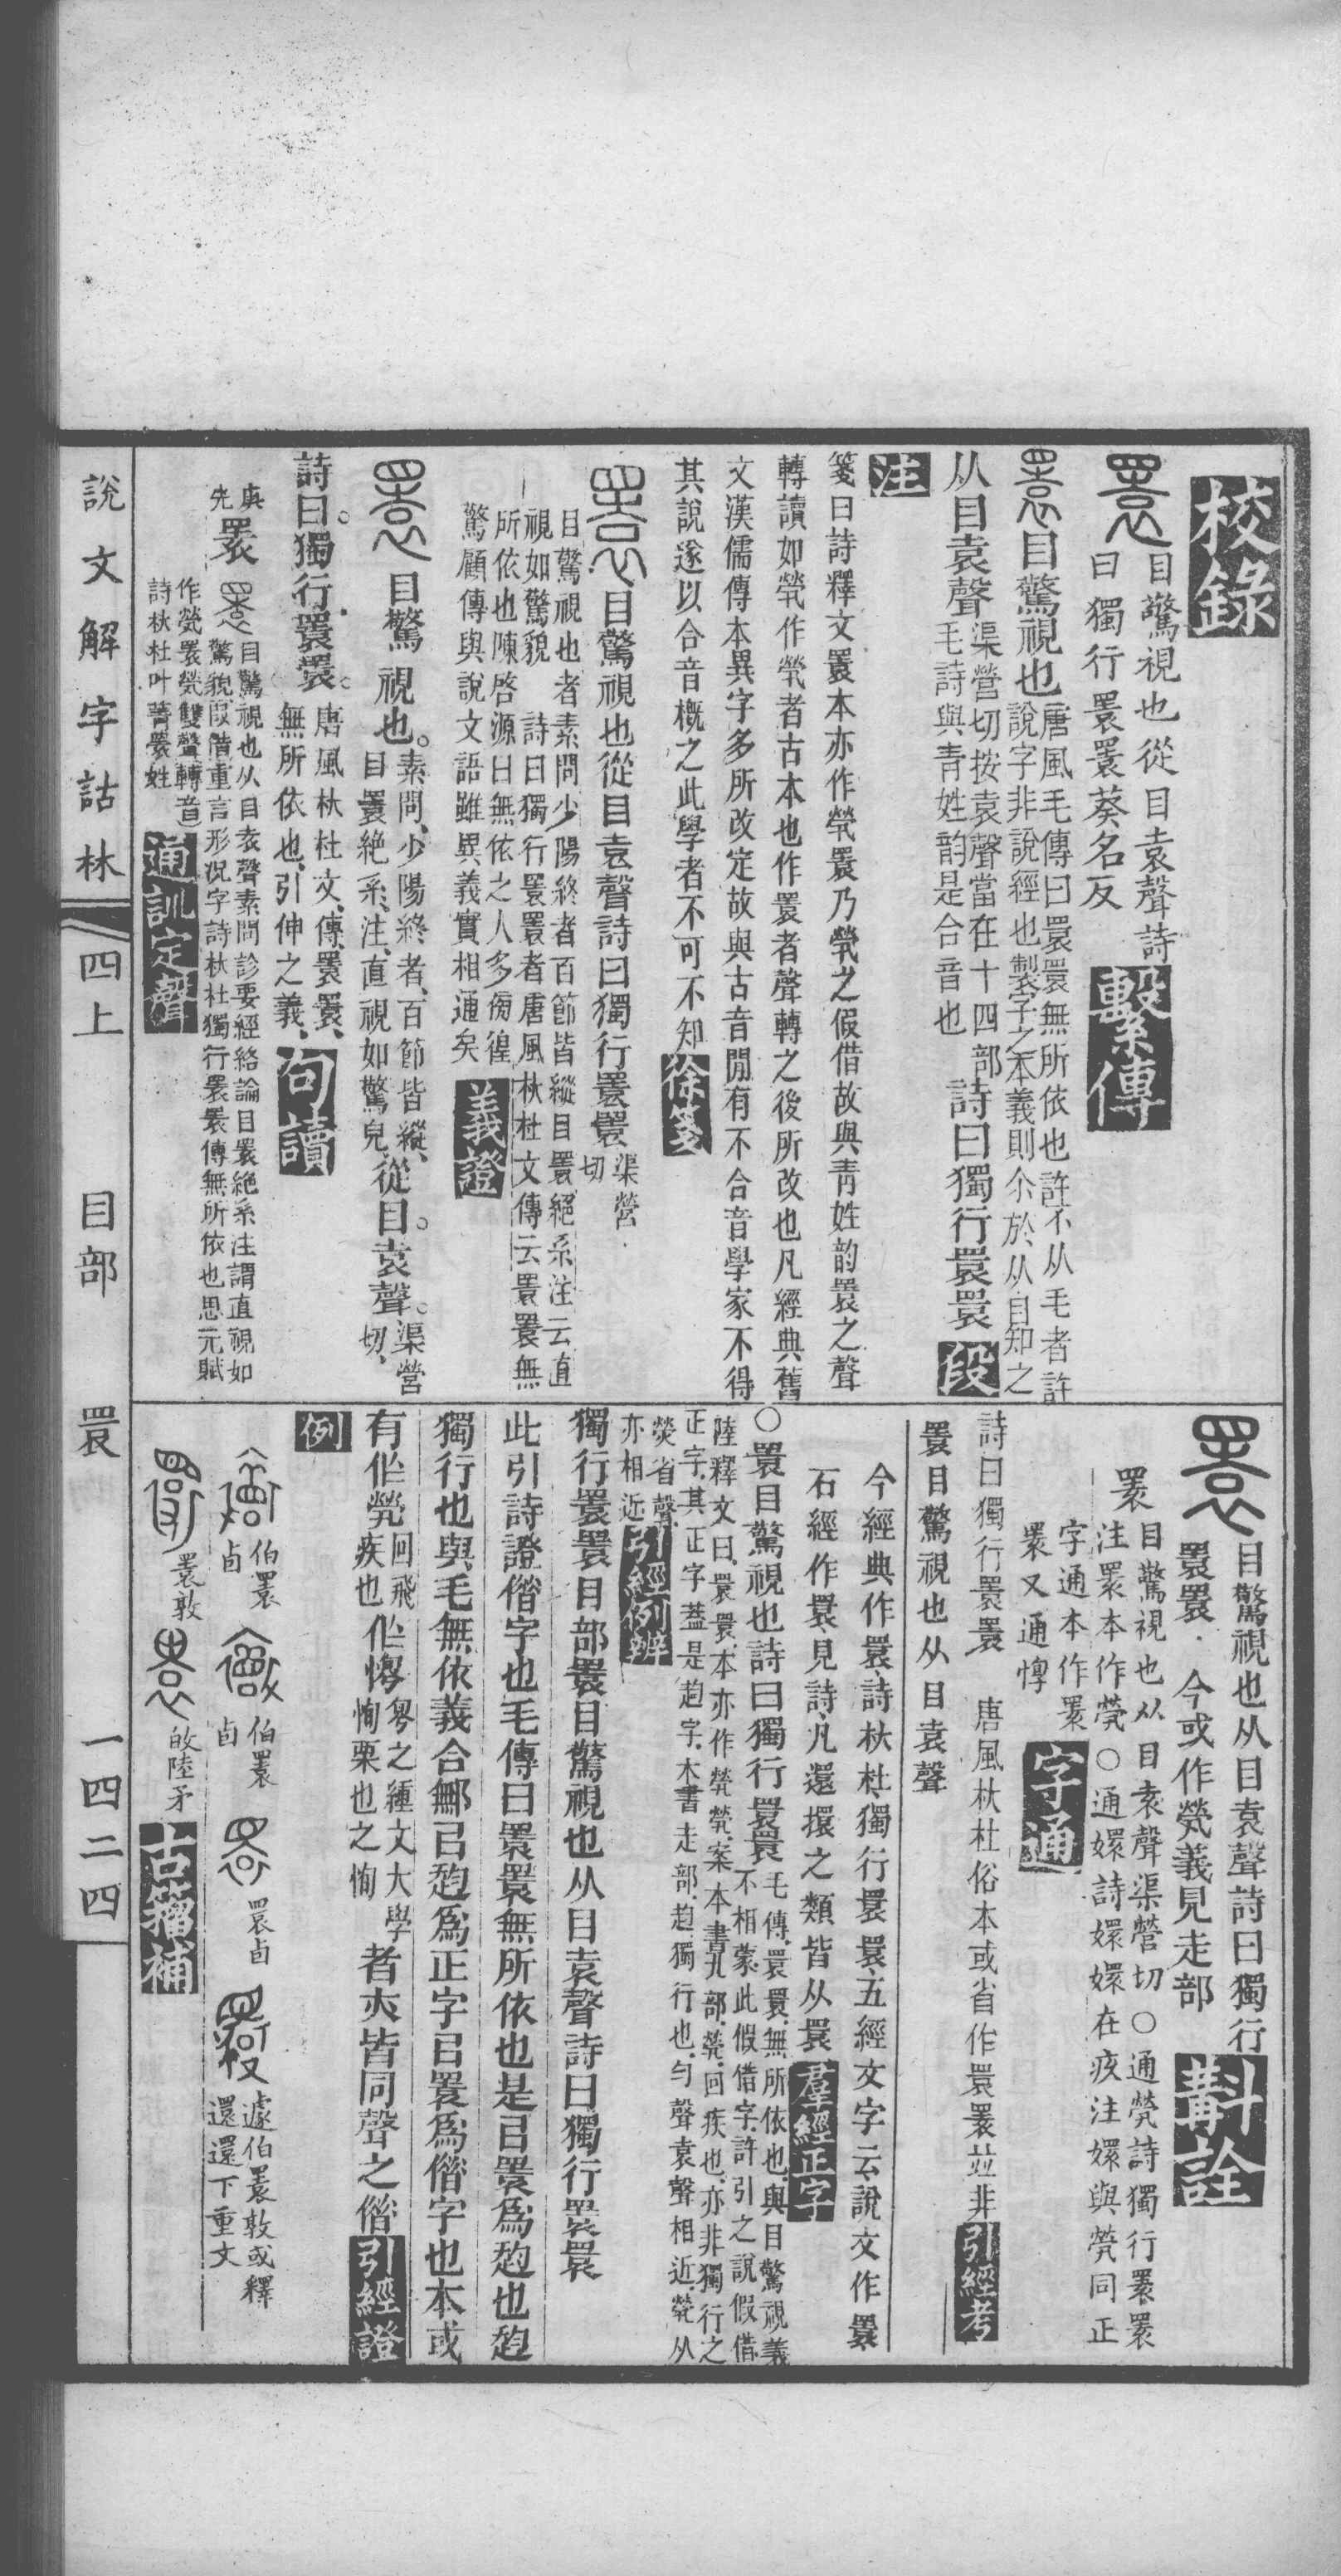 校錄
目驚視也從目袁聲詩
曰獨行睘睘葵名反
繫傳
目驚視也唐風毛傳曰睘睘無所依也許不从毛者許
說字非說經也製字之本義則尒於从目知之
从目袁聲渠營切按袁聲當在十四部
毛詩與青姓韵是合音也
詩曰獨行睘睘
段
注
箋曰詩釋文睘本亦作煢睘乃煢之假借故與青姓韵睘之聲
轉讀如煢作煢者古本也作睘者聲轉之後所改也凡經典舊
文漢儒傳本異字多所改定故與古音閒有不合音學家不得
其說遂以合音槪之此學者不可不知
徐箋
目驚視也從目袁聲詩曰獨行睘睘渠營
切
目驚視也者素問少陽終者百節皆縱目睘絕系注云直
視如驚貌 詩曰獨行睘睘者唐風杕杜文傳云睘睘無
所依也陳啓源曰無依之人多徬徨
驚顧傳與說文語雖異義實相通矣
義證
目驚視也。素問、少陽終者、百節皆縱、
目睘絕系、注、直視如驚皃、
從目。袁聲。渠營
切、
詩曰。獨行睘睘。唐風杕杜文、傳、睘睘、
無所依也、引伸之義、
句讀
庚
先
睘
目驚視也从目袁聲素問診要經絡論目睘絕系注謂直視如
驚貌叚借重言形況字詩杕杜獨行睘睘傳無所依也思元賦
作煢睘煢雙聲轉音
詩杕杜叶菁睘姓
通訓定聲
目驚視也从目袁聲詩曰獨行
睘睘．今或作煢義見走部
斠詮
睘
目驚視也从目袁聲渠營切○通煢詩獨行睘睘
注睘本作煢○通嬛詩嬛嬛在疚注嬛與煢同正
字通本作睘
睘又通惸
字通
詩曰獨行睘睘 唐風杕杜俗本或省作睘睘並非
引經考
睘目驚視也从目袁聲
今經典作睘詩杕杜獨行睘睘五經文字云說文作睘
石經作睘見詩凡還擐之類皆从睘
羣經正字
○睘目驚視也詩曰獨行睘睘毛傳睘睘無所依也與目驚視義
不相蒙此假借字許引之說假借
陸釋文曰睘睘本亦作煢煢案本書卂部煢回疾也亦非獨行之
正字其正字蓋是趙字本書走部趙獨行也勻聲袁聲相近煢从
熒省聲
亦相近
引經例辨
獨行睘睘目部睘目驚視也从目袁聲詩曰獨行睘睘
此引詩證借字也毛傳曰睘睘無所依也是㠯睘爲趙也趙
獨行也與毛無依義合鄦㠯趙爲正字㠯睘爲借字也本或
有作煢回飛
疾也
作惸
者亦皆同聲之借
引經證
例
伯睘
卣
伯睘
卣
睘卣
遽伯睘敦或釋
還還下重文
睘敦
㪣陸矛
古籀補
說文解字詁林
四上
目部
睘
一四二四